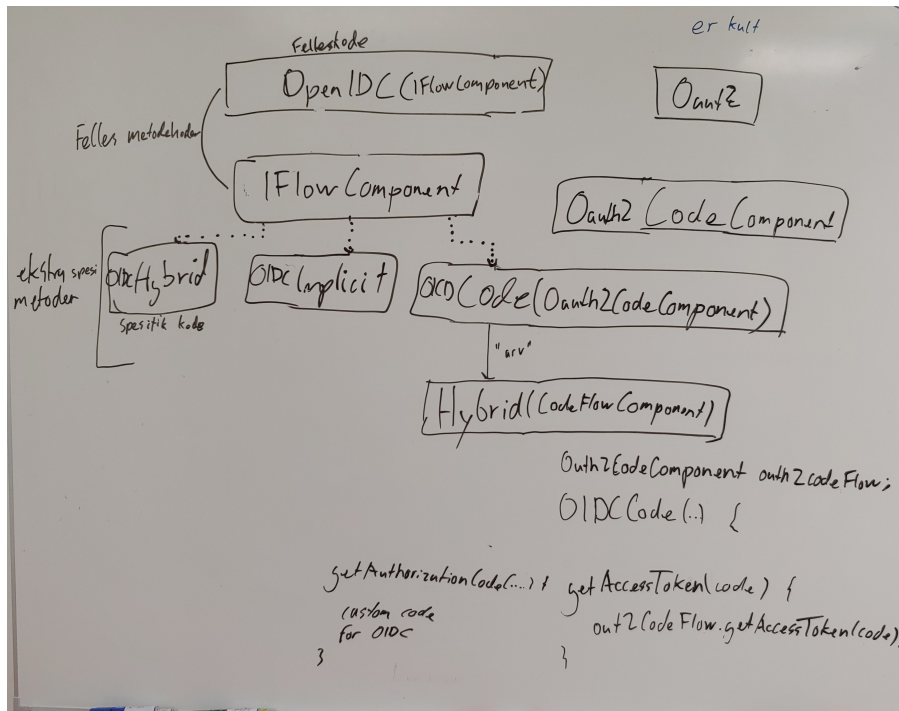 er kult
Felleskode
OpenIDC(IFlowComponent)
Oaut2
Felles metodekoder
IFlowComponent
Oauth2 CodeComponent
ekstra spesi
metoder
OIDCHybrid
spesifik kode
OIDC Implicit
OICDCode(Oauth2CodeComponent)
"arv"
Hybrid(CodeFlowComponent)
Outh2CodeComponent outh2codeFlow;
OIDCCode(..) {
getAuthorizationCode(....) {
custom code
for OIDC
}
getAccessToken(code) {
out2CodeFlow.getAccessToken(code)
}